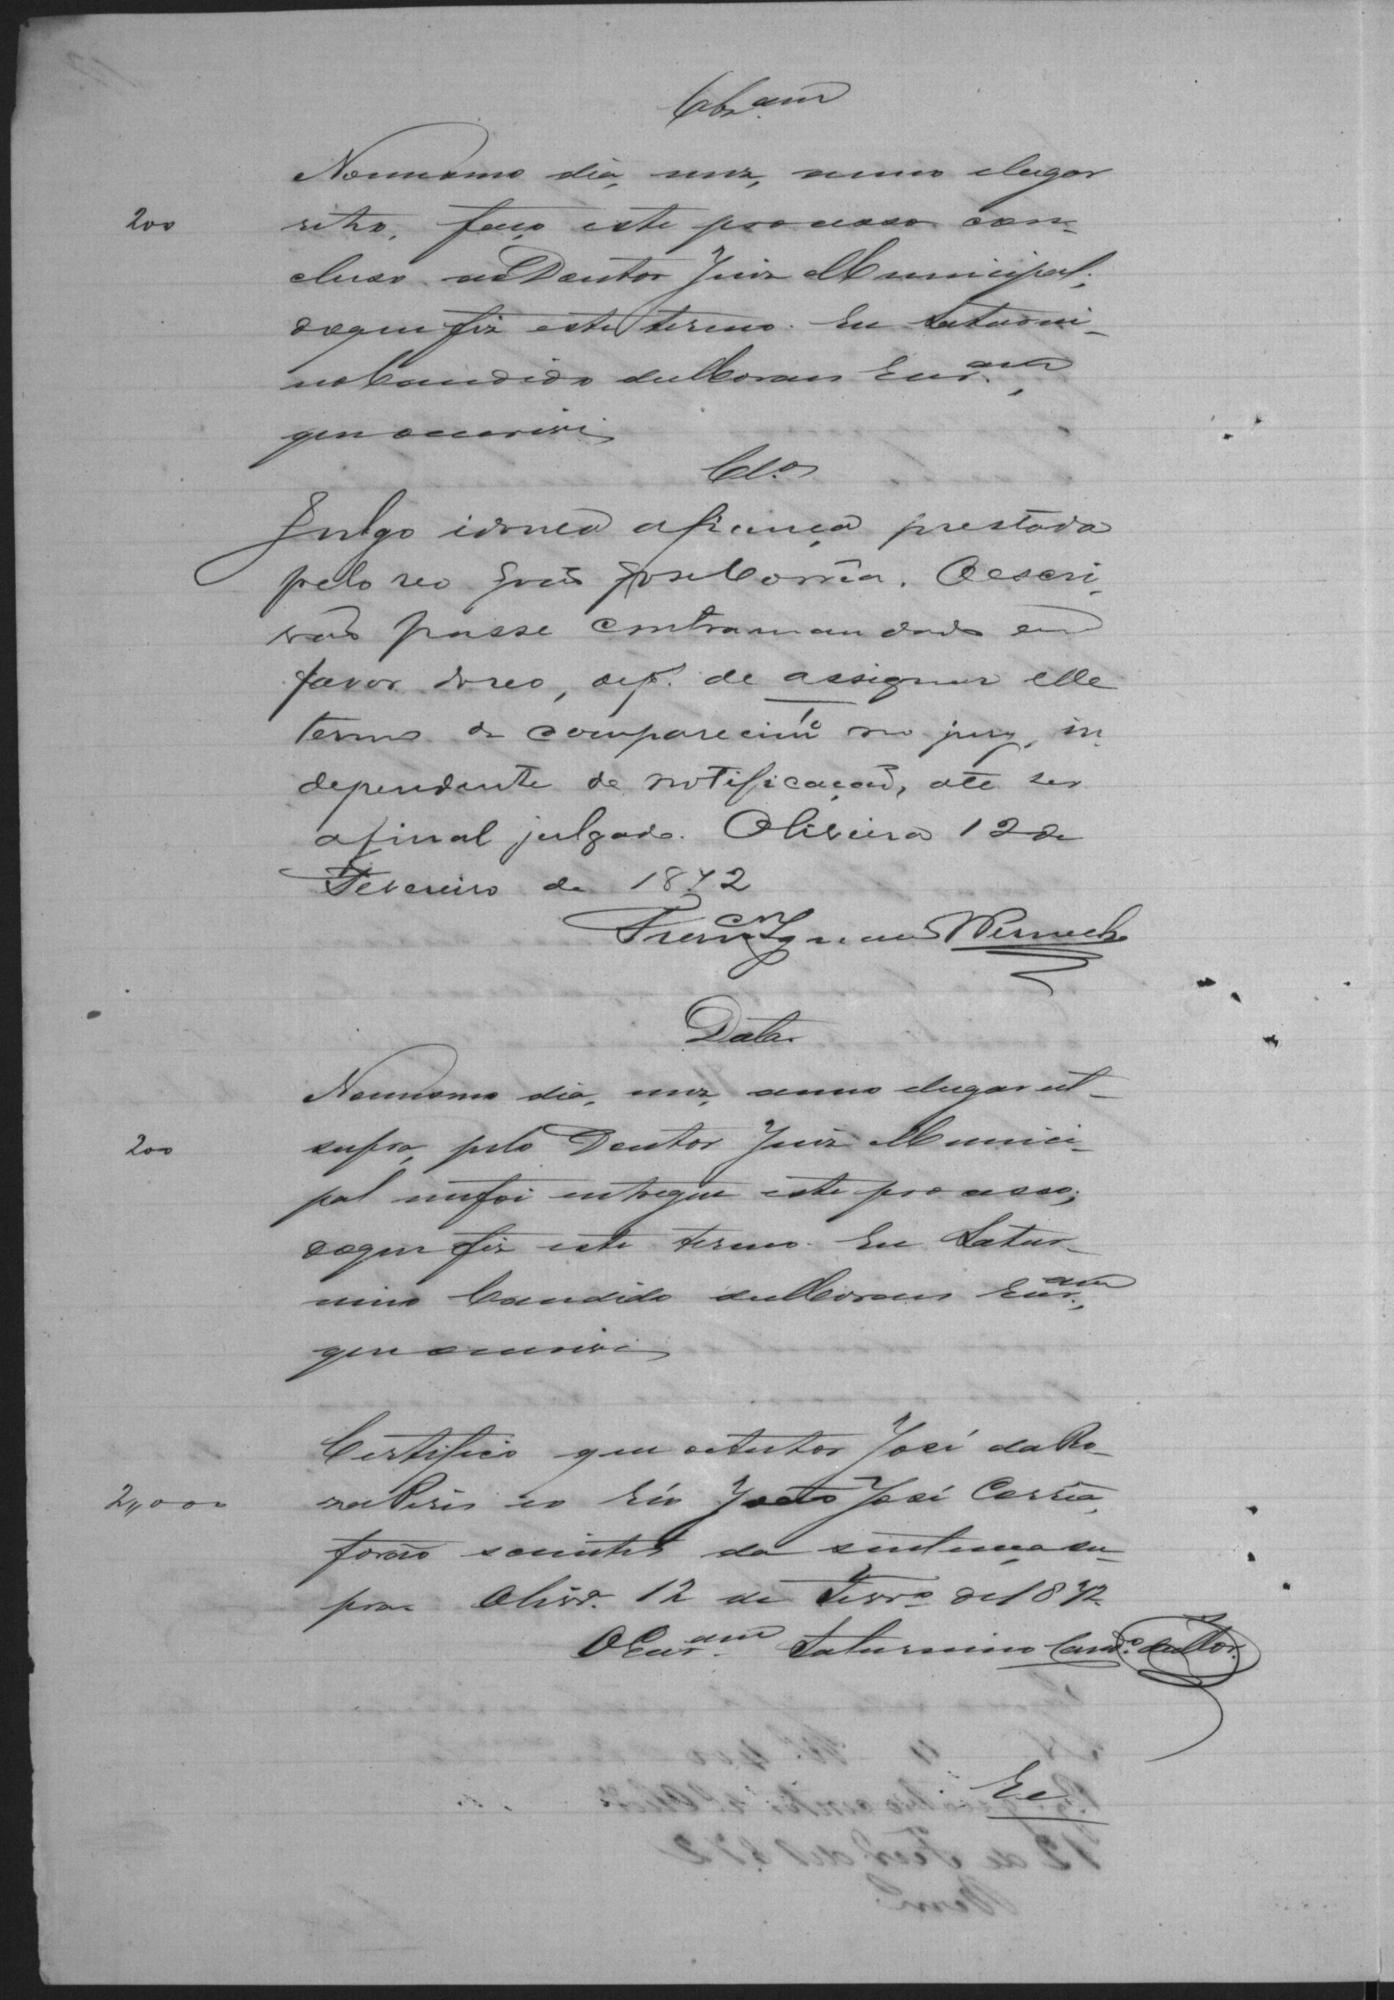 Clz.am
No mesmo dia, mez, anno elugar
200
retro, faço este processo con-
cluso ao Doutor Juiz Municipal;
doque fiz este termo. Eu Saturni-
no Candido de Moraes Escr.am,
que oescrevi
Cl.os
Julgo idonea afiança prestada
pelo reo João José Corrêa. O escri-
vão passe contramandado em
favor do reo, dep. de assignar elle
termo de comparecim.to no jury, in-
dependente de notificação, até ser
afinal julgado. Oliveira 12 de
Fevereiro de 1872
Franc.co Ignacio Werneck
Data
No mesmo dia, mez, anno elugar ut-
200
supra, pelo Doutor Juiz Munici-
pal mefoi entregue este processo;
doque fiz este termo. Eu Satur-
nino Candido de Moraes Escr.am,
que oescrevi
Certifico que o Autor José da Ro-
2,,000
eo Réo João José Corrêa,
forão scientes da sentença su-
pra. Olivr.a 12 de Fevr.o de 1872
O Escr.am Saturnino Cand.o de Mor.